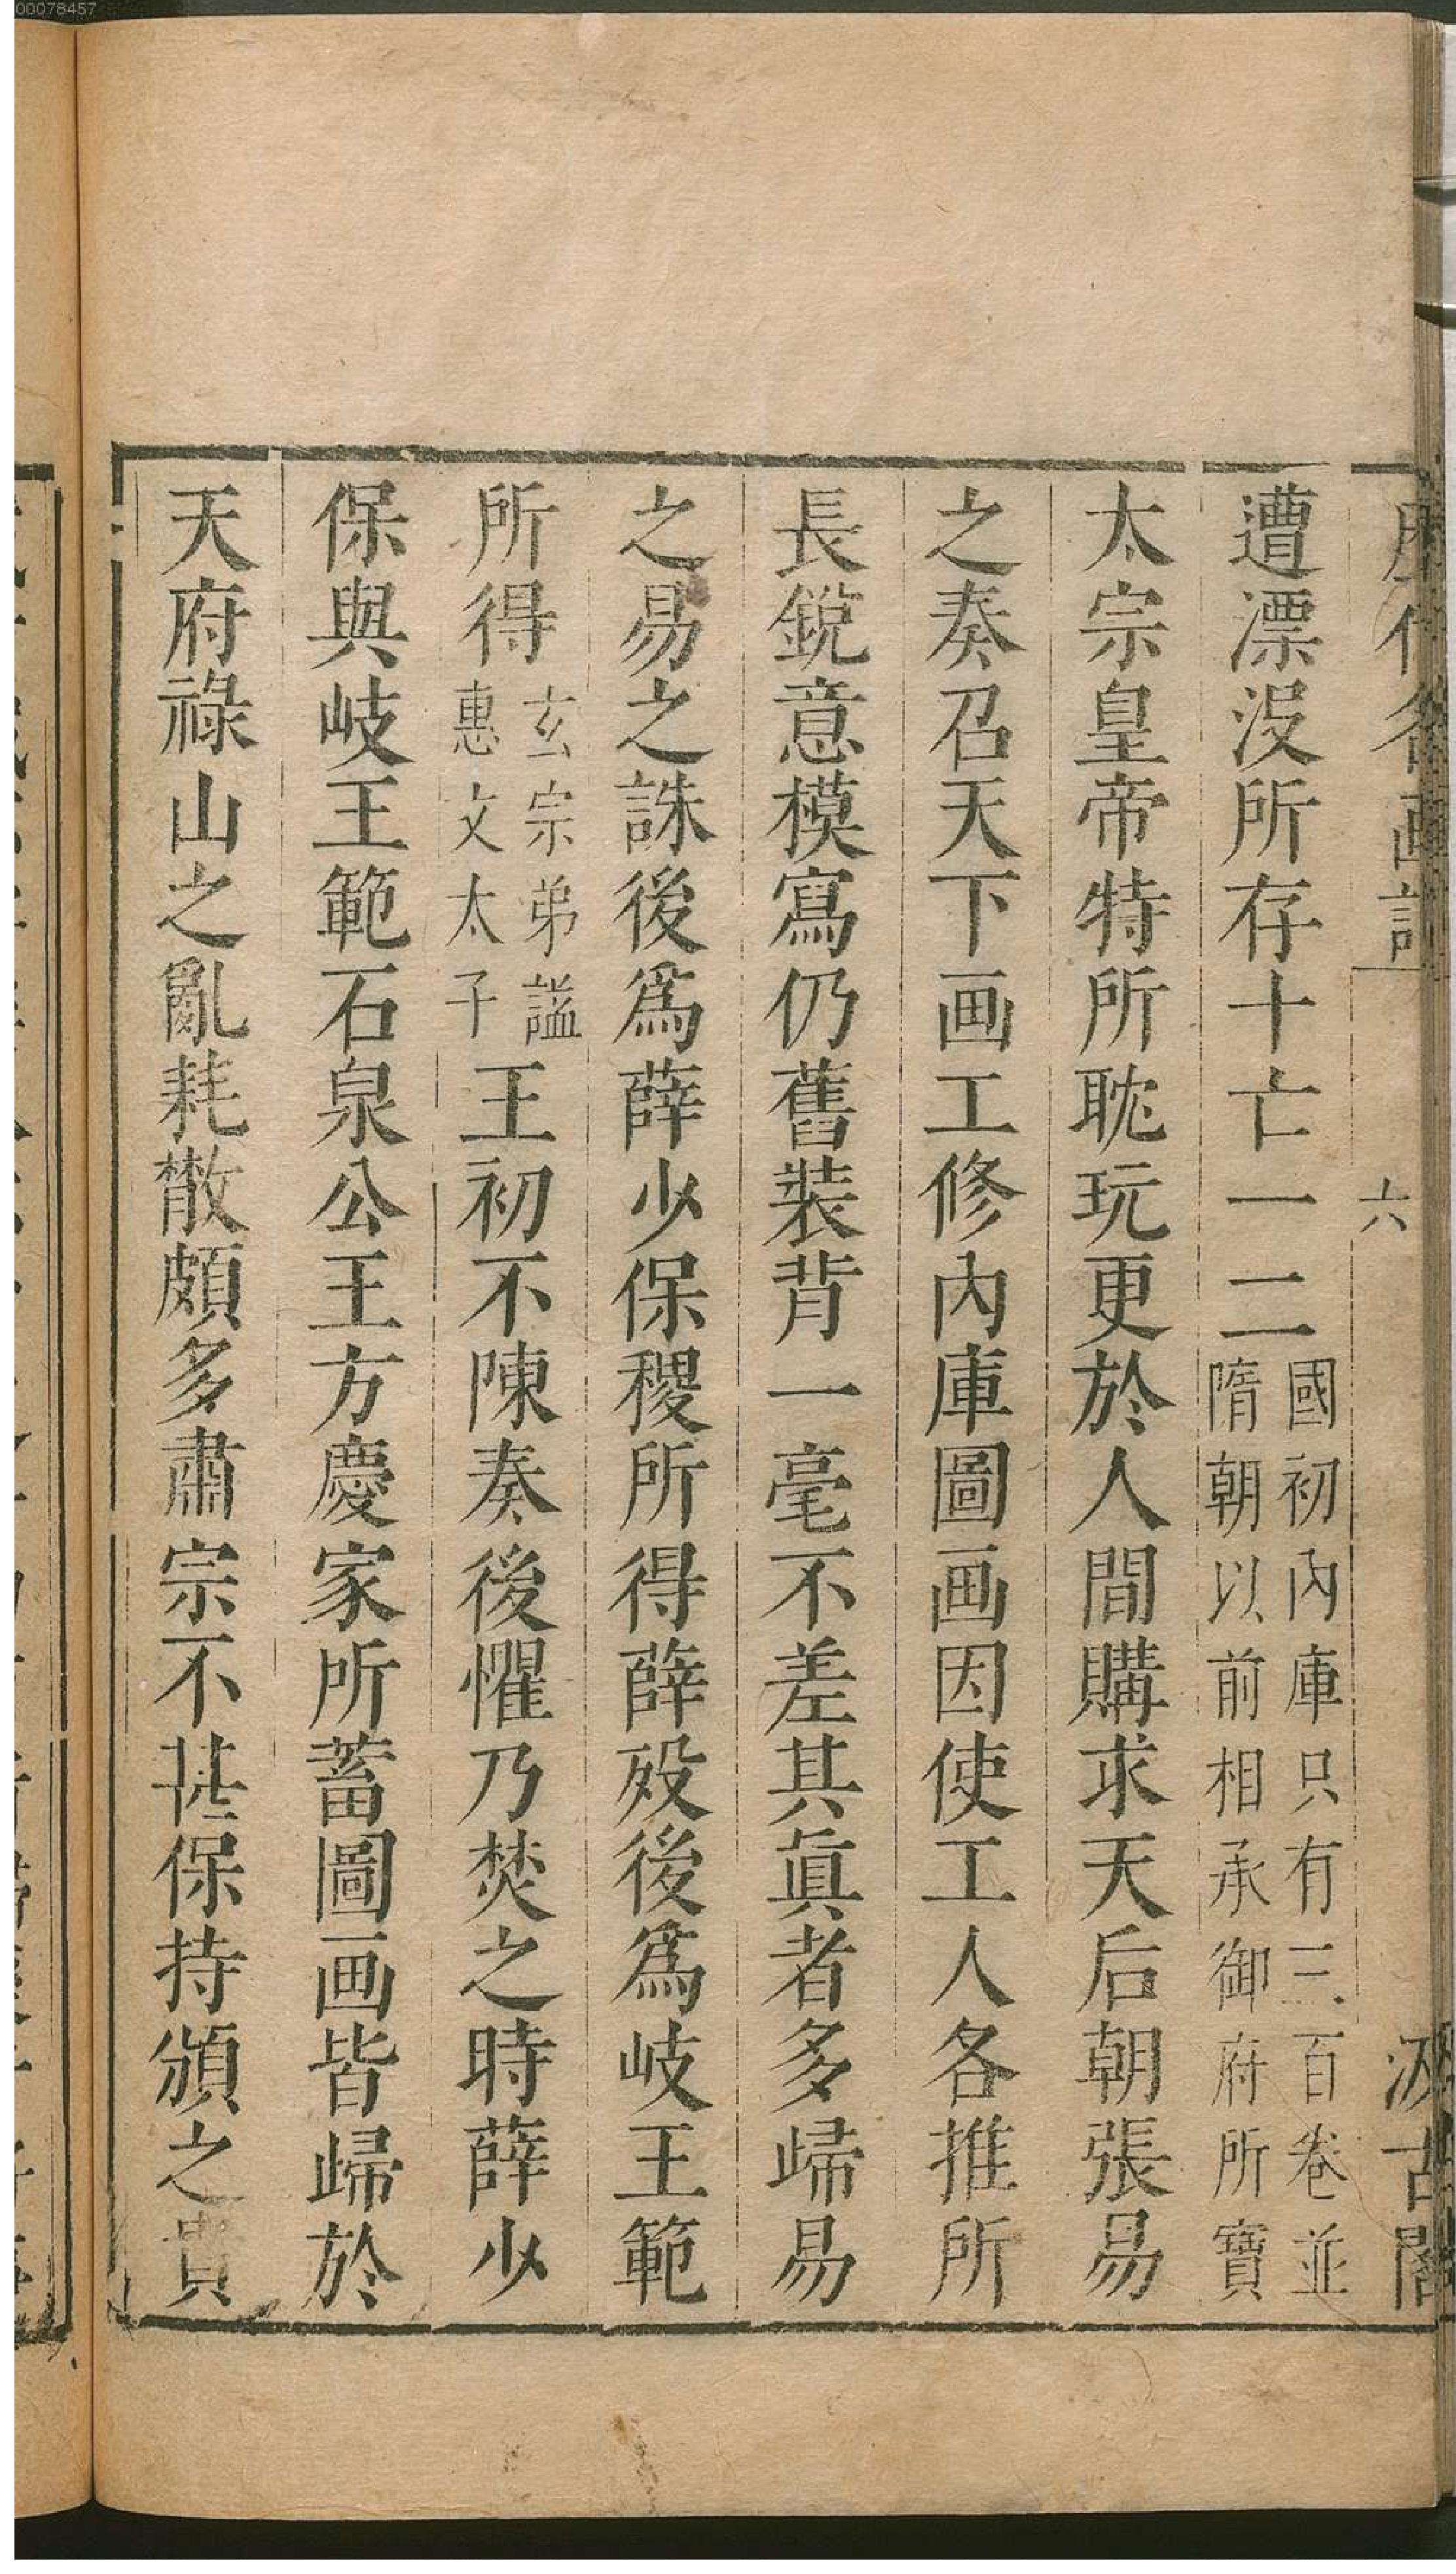 00078457
歷代名画記
六
汲古閣
遭漂沒所存十亡一二國初內庫只有三百卷並隋朝以前相承御府所寶
太宗皇帝特所耽玩更於人間購求天后朝張易
之奏召天下画工修內庫圖画因使工人各推所
長銳意模寫仍舊裝背一毫不差其眞者多歸易
之易之誅後爲薛少保稷所得薛歿後爲岐王範
所得玄宗弟謚惠文太子王初不陳奏後懼乃焚之時薛少
保與岐王範石泉公王方慶家所蓄圖画皆歸於
天府祿山之亂耗散頗多肅宗不甚保持頒之貴